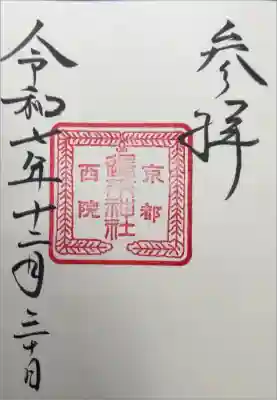 参拝
京都
春日神社
西院
令和六年十二月三十日